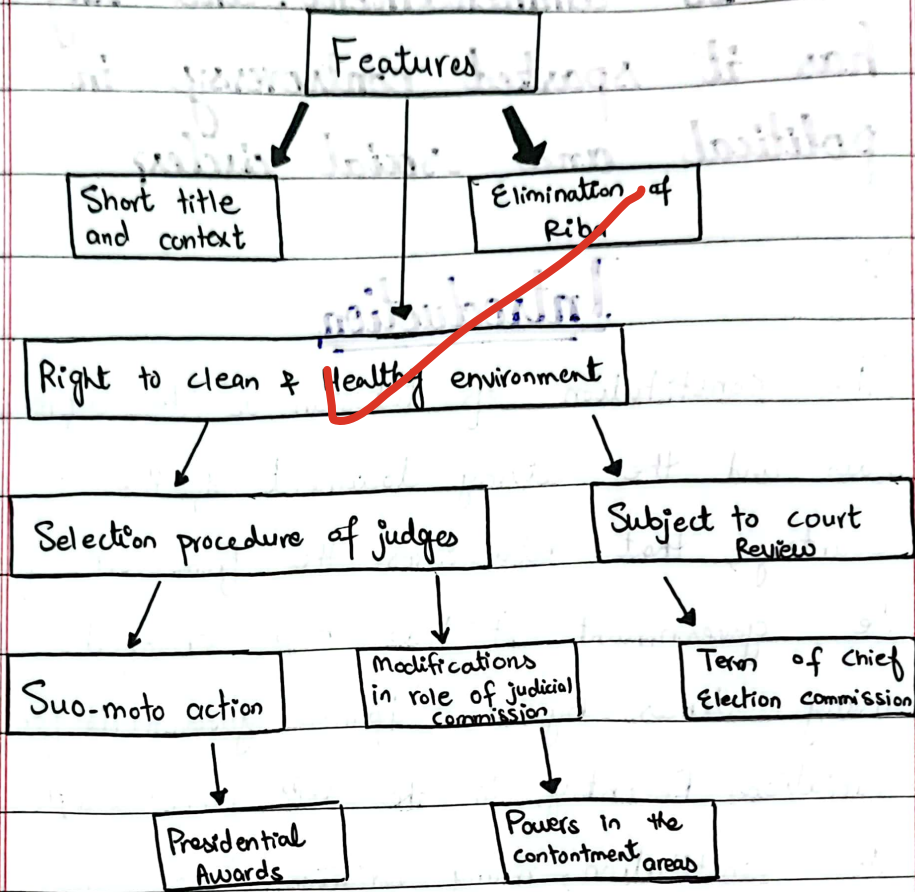 Features
Short title
and context
Elimination of
Riba
Right to clean & Healthy environment
Selection procedure of judges
Subject to court
Review
Suo-moto action
Modifications
in role of judicial
commission
Term of Chief
Election commission
Presidential
Awards
Powers in the
contontment areas